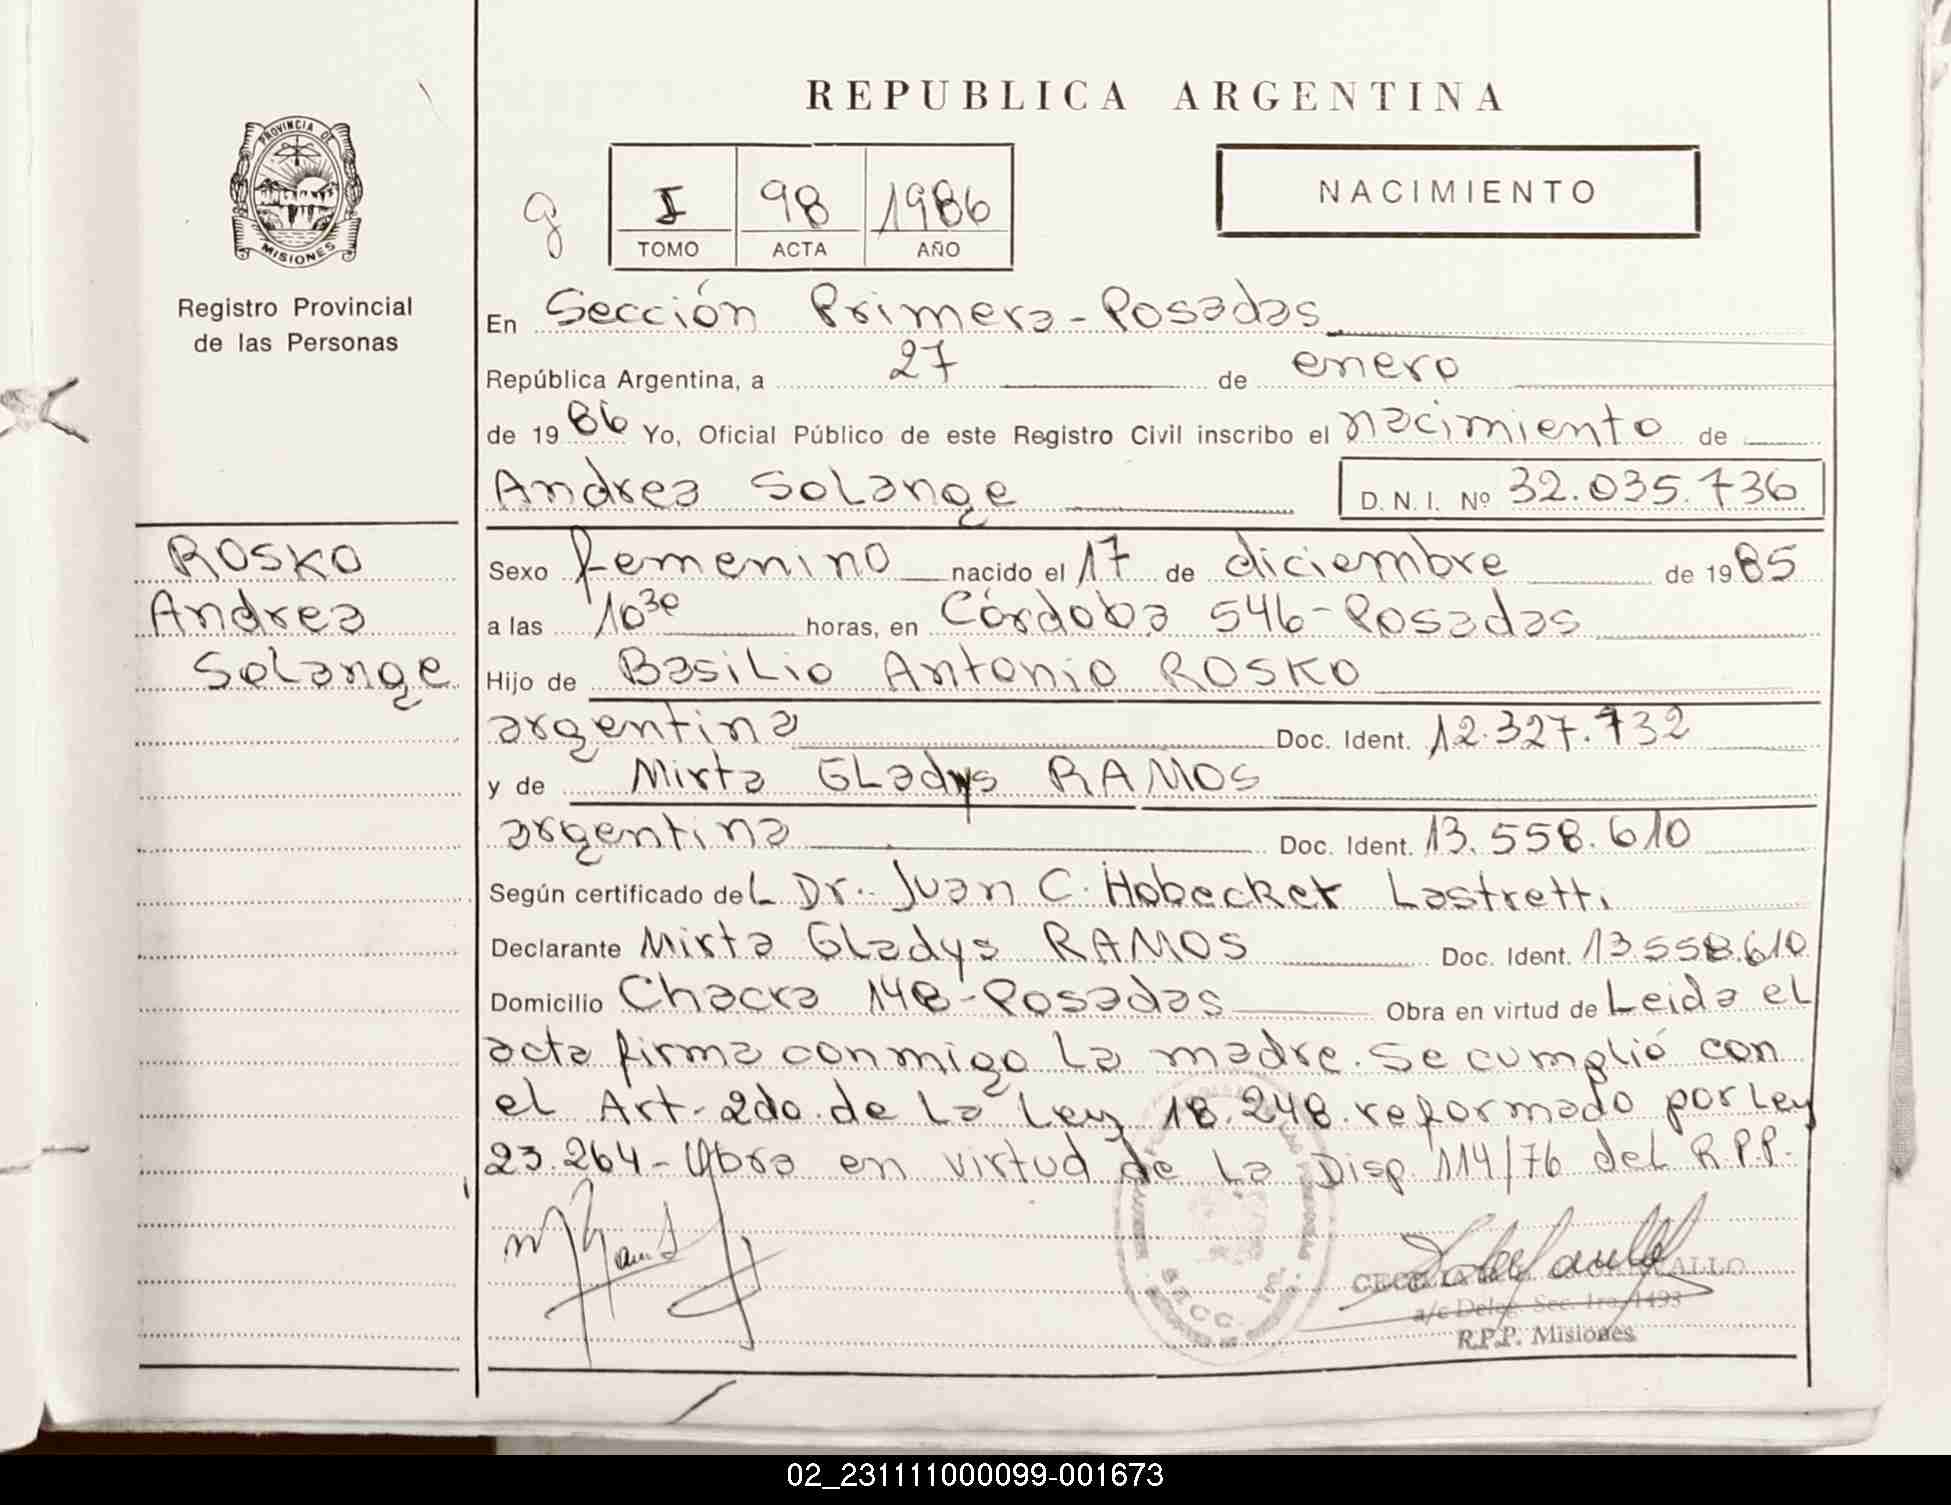 REPUBLICA ARGENTINA
PROVINCIA DE
MISIONES
Registro Provincial
de las Personas
g
I 98 1986
TOMO ACTA AÑO
NACIMIENTO
En Sección Primera - Posadas
República Argentina, a 27 de enero
de 1986 Yo, Oficial Público de este Registro Civil inscribo el nacimiento de
Andrea Solange D. N. I. Nº 32.035.736
ROSKO
Andrea
Solange
Sexo femenino nacido el 17 de diciembre de 1985
a las 10³⁰ horas, en Córdoba 546 - Posadas
Hijo de Basilio Antonio ROSKO
argentina Doc. Ident. 12.327.732
y de Mirta Gladys RAMOS
argentina Doc. Ident. 13.558.610
Según certificado del Dr. Juan C. Hobecker Lastretti
Declarante Mirta Gladys RAMOS Doc. Ident. 13.558.610
Domicilio Chacra 148 - Posadas Obra en virtud de Leida el
acta firma conmigo la madre. Se cumplió con
el Art. 2do. de la Ley 18.248 reformado por Ley
23.264 - Obra en virtud de la Disp. 114/76 del R.P.P.
a/c Deleg. Sec. 1ra. 1493
R.P.P. Misiones
02_231111000099-001673